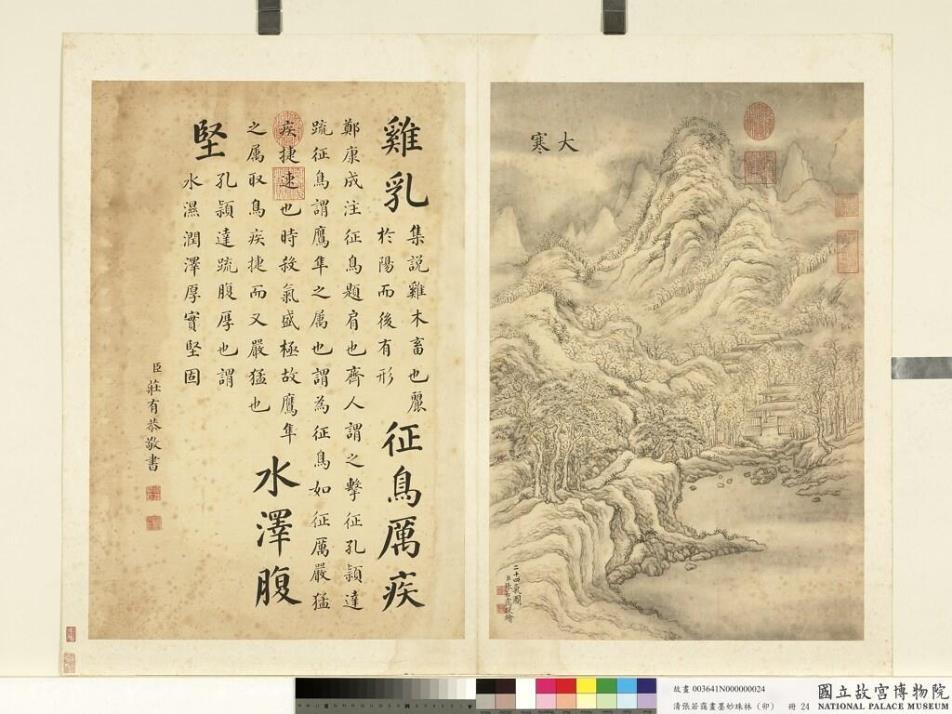 大寒
二十四氣圖
臣張若靄敬繪
雞乳
集說雞木畜也麗
於陽而後有形
征鳥厲疾
鄭康成注征鳥題肩也齊人謂之擊征孔穎達
疏征鳥謂鷹隼之属也謂為征鳥如征厲嚴猛
疾捷速也時殺氣盛極故鷹隼
之属取鳥疾捷而又嚴猛也
水澤腹
堅
孔穎達疏腹厚也謂
水濕潤澤厚實堅固
臣莊有恭敬書
故畫 003641N000000024
清張若靄畫墨妙珠林(卯) 冊 24
國立故宮博物院
NATIONAL PALACE MUSEUM